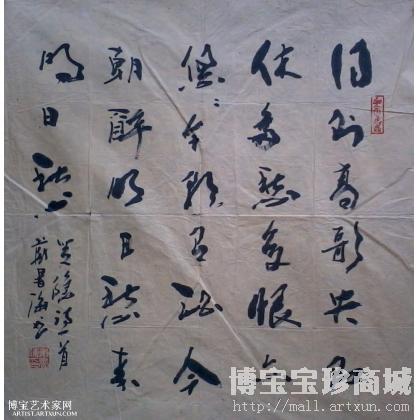 得即高歌失即
休多愁多恨亦
悠〻今朝有酒今
朝醉明日愁来
明日愁
罗隐诗一首
海书
博宝宝珍商城
http://mall.artxun.com
博宝艺术家网
ARTIST.ARTXUN.COM